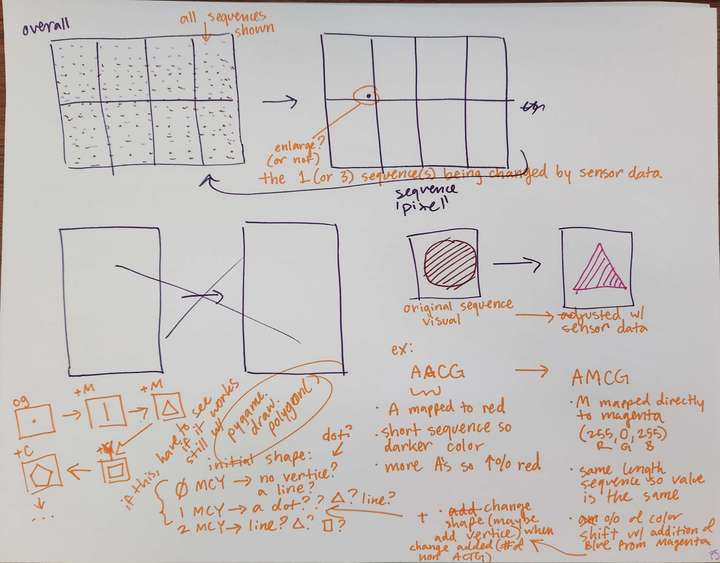 overall
all sequences
shown
enlarge?
(or not)
the 1 (or 3) sequence(s) being changed by sensor data
sequence
'pixel'
original sequence
visual
adjusted w/
sensor data
ex:
AACG
AMCG
• A mapped to red
• short sequence so
darker color
• more A's so ↑% red
• M mapped directly
to magenta
(255, 0, 255)
R G B
• same length
sequence so value
is the same
• % of color
shift w/ addition of
Blue from magenta
+ • add change
shape (maybe
add vertice) when
change added (# of
non ACTG)
og
+M
+M
+C
+Y
...
if this, have to see
if it works
still w/
pygame.
draw.
polygon()
initial shape:
dot?
0 MCY → no vertice?
a line?
1 MCY → a dot?? △? line?
2 MCY → line? △? □?